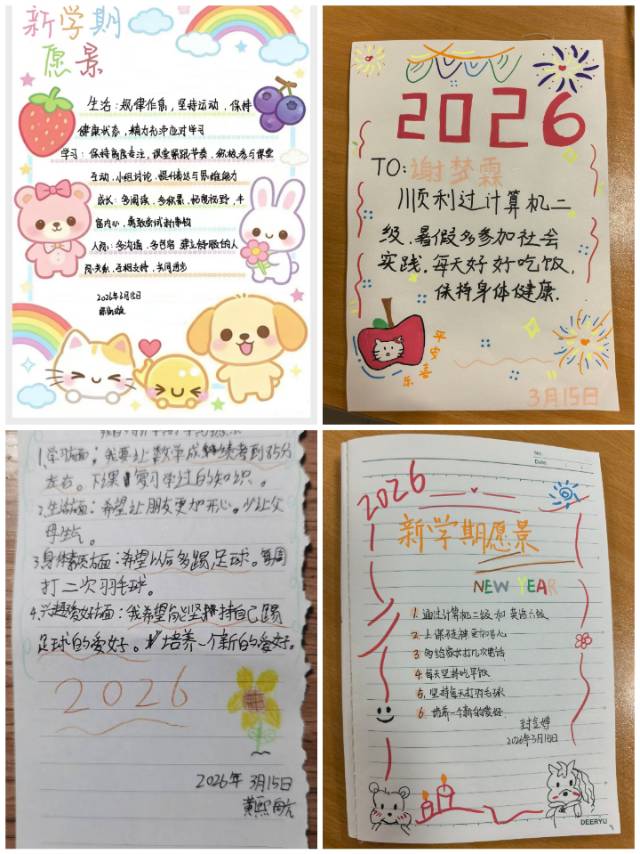 新学期
愿景
生活：规律作息，坚持运动，保持
健康状态，精力充沛应对学习
学习：保持高度专注，课堂紧跟节奏，积极参与课堂
互动，小组讨论，提升表达与思维能力
成长：多阅读，多积累，拓宽视野，丰
富内心，勇敢尝试新事物
人际：多沟通，多包容，建立舒服的人
际关系，互相支持，共同进步
2026年3月
2026
TO：谢梦霖
顺利过计算机二
级，暑假多参加社会
实践，每天好好吃饭，
保持身体健康.
平安喜乐
3月15日
1.学习方面：我要让数学成绩考到85分
左右。下课复习学过的知识。
2.生活方面：希望让朋友更加开心。少让父
母生气。
3.身体素质方面：希望以后多踢足球。每周
打二次羽毛球。
4.兴趣爱好方面：我希望能坚持自己踢
足球的爱好。培养一个新的爱好。
2026
2026年3月15日
黄熙
2026
No.
Date.
新学期愿景
NEW YEAR
1. 通过计算机二级和英语六级
2. 上课
3. 多给家人打几次电话
4. 每天坚持吃早饭
5. 坚持每天打羽毛球
6. 培养一个新的爱好
2026年3月15日
DEERYU